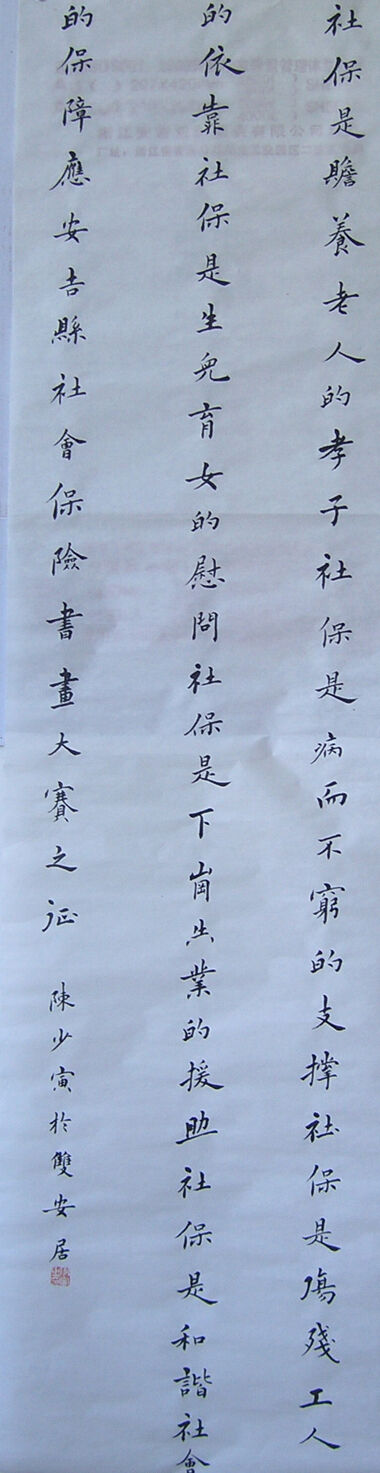 社保是贍養老人的孝子社保是病而不窮的支撑社保是傷殘工人
的依靠社保是生兒育女的慰問社保是下崗出業的援助社保是和諧社會
的保障應安吉縣社會保險書畫大賽之征
陳少寅於雙安居